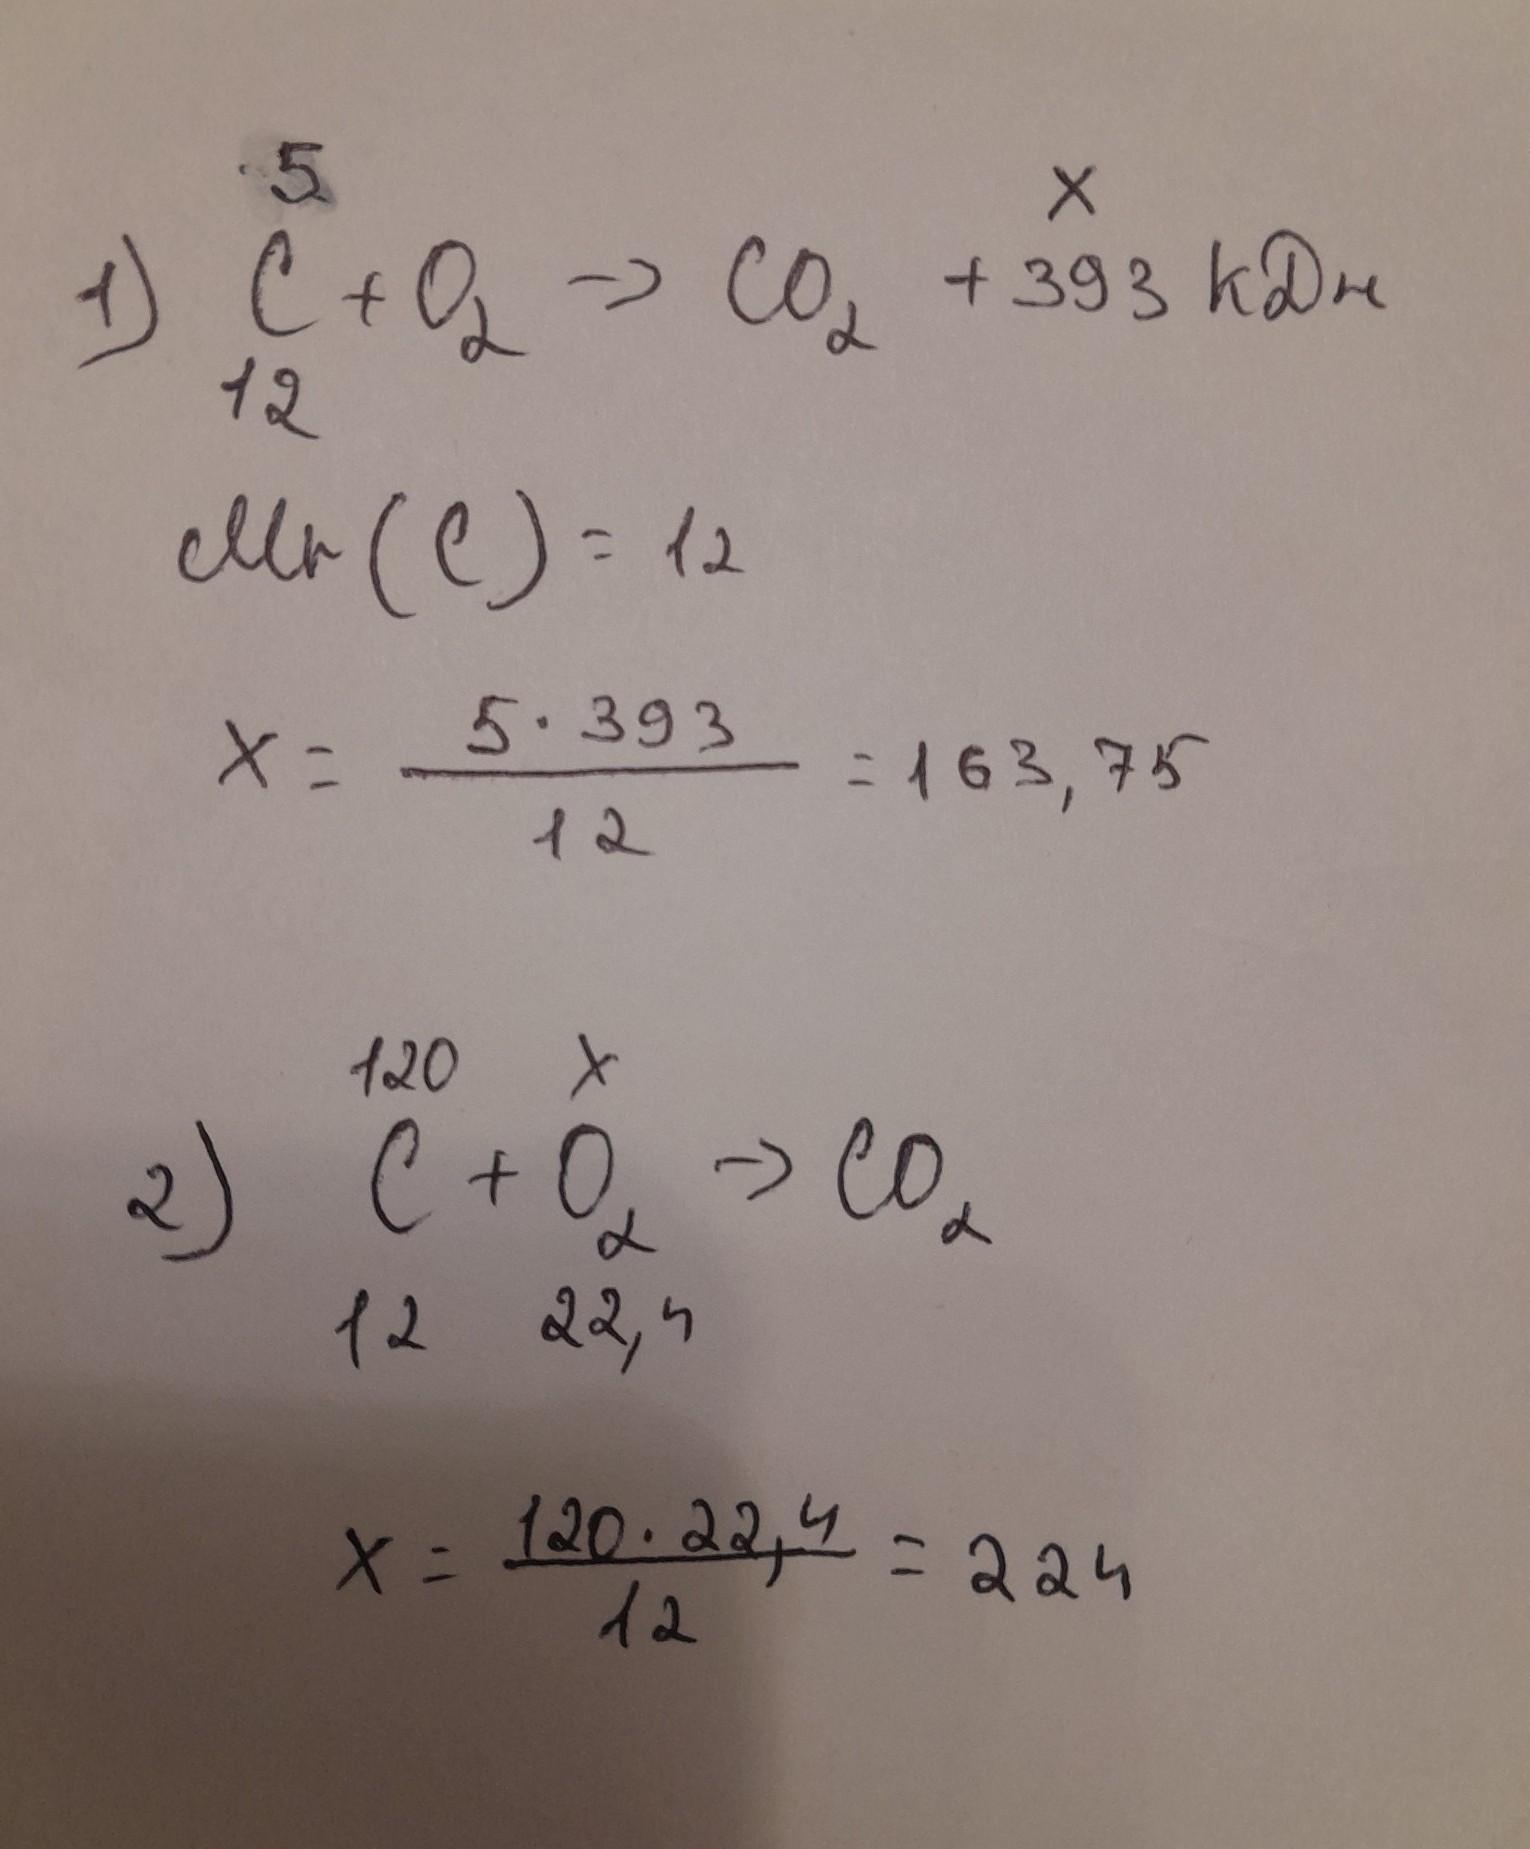 ·5 x
1) C + O₂ → CO₂ + 393 кДж
12
Mr (C) = 12
x = 5·393 / 12 = 163,75
120 x
2) C + O₂ → CO₂
12 22,4
x = 120·22,4 / 12 = 224